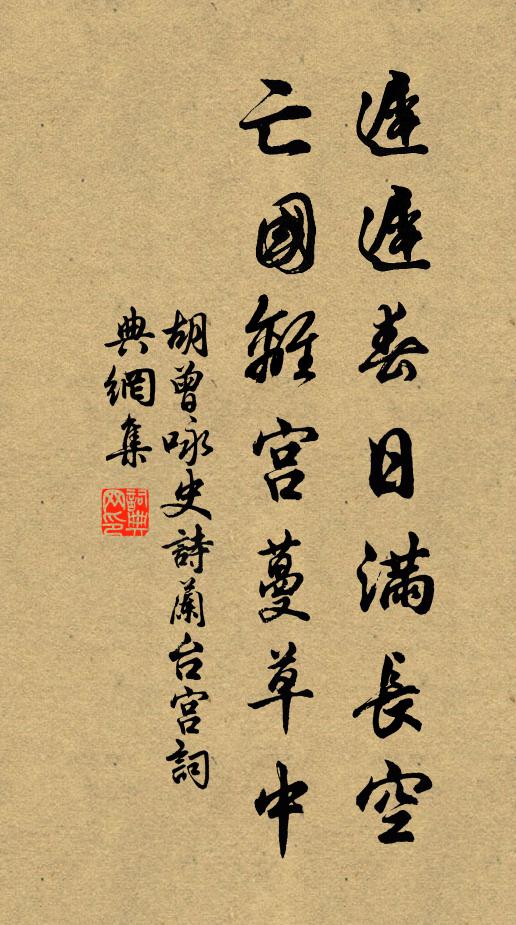 遲遲春日滿長空
亡國離宮蔓草中
胡曾咏史詩蘭台宮詞
典網集
詞典网印